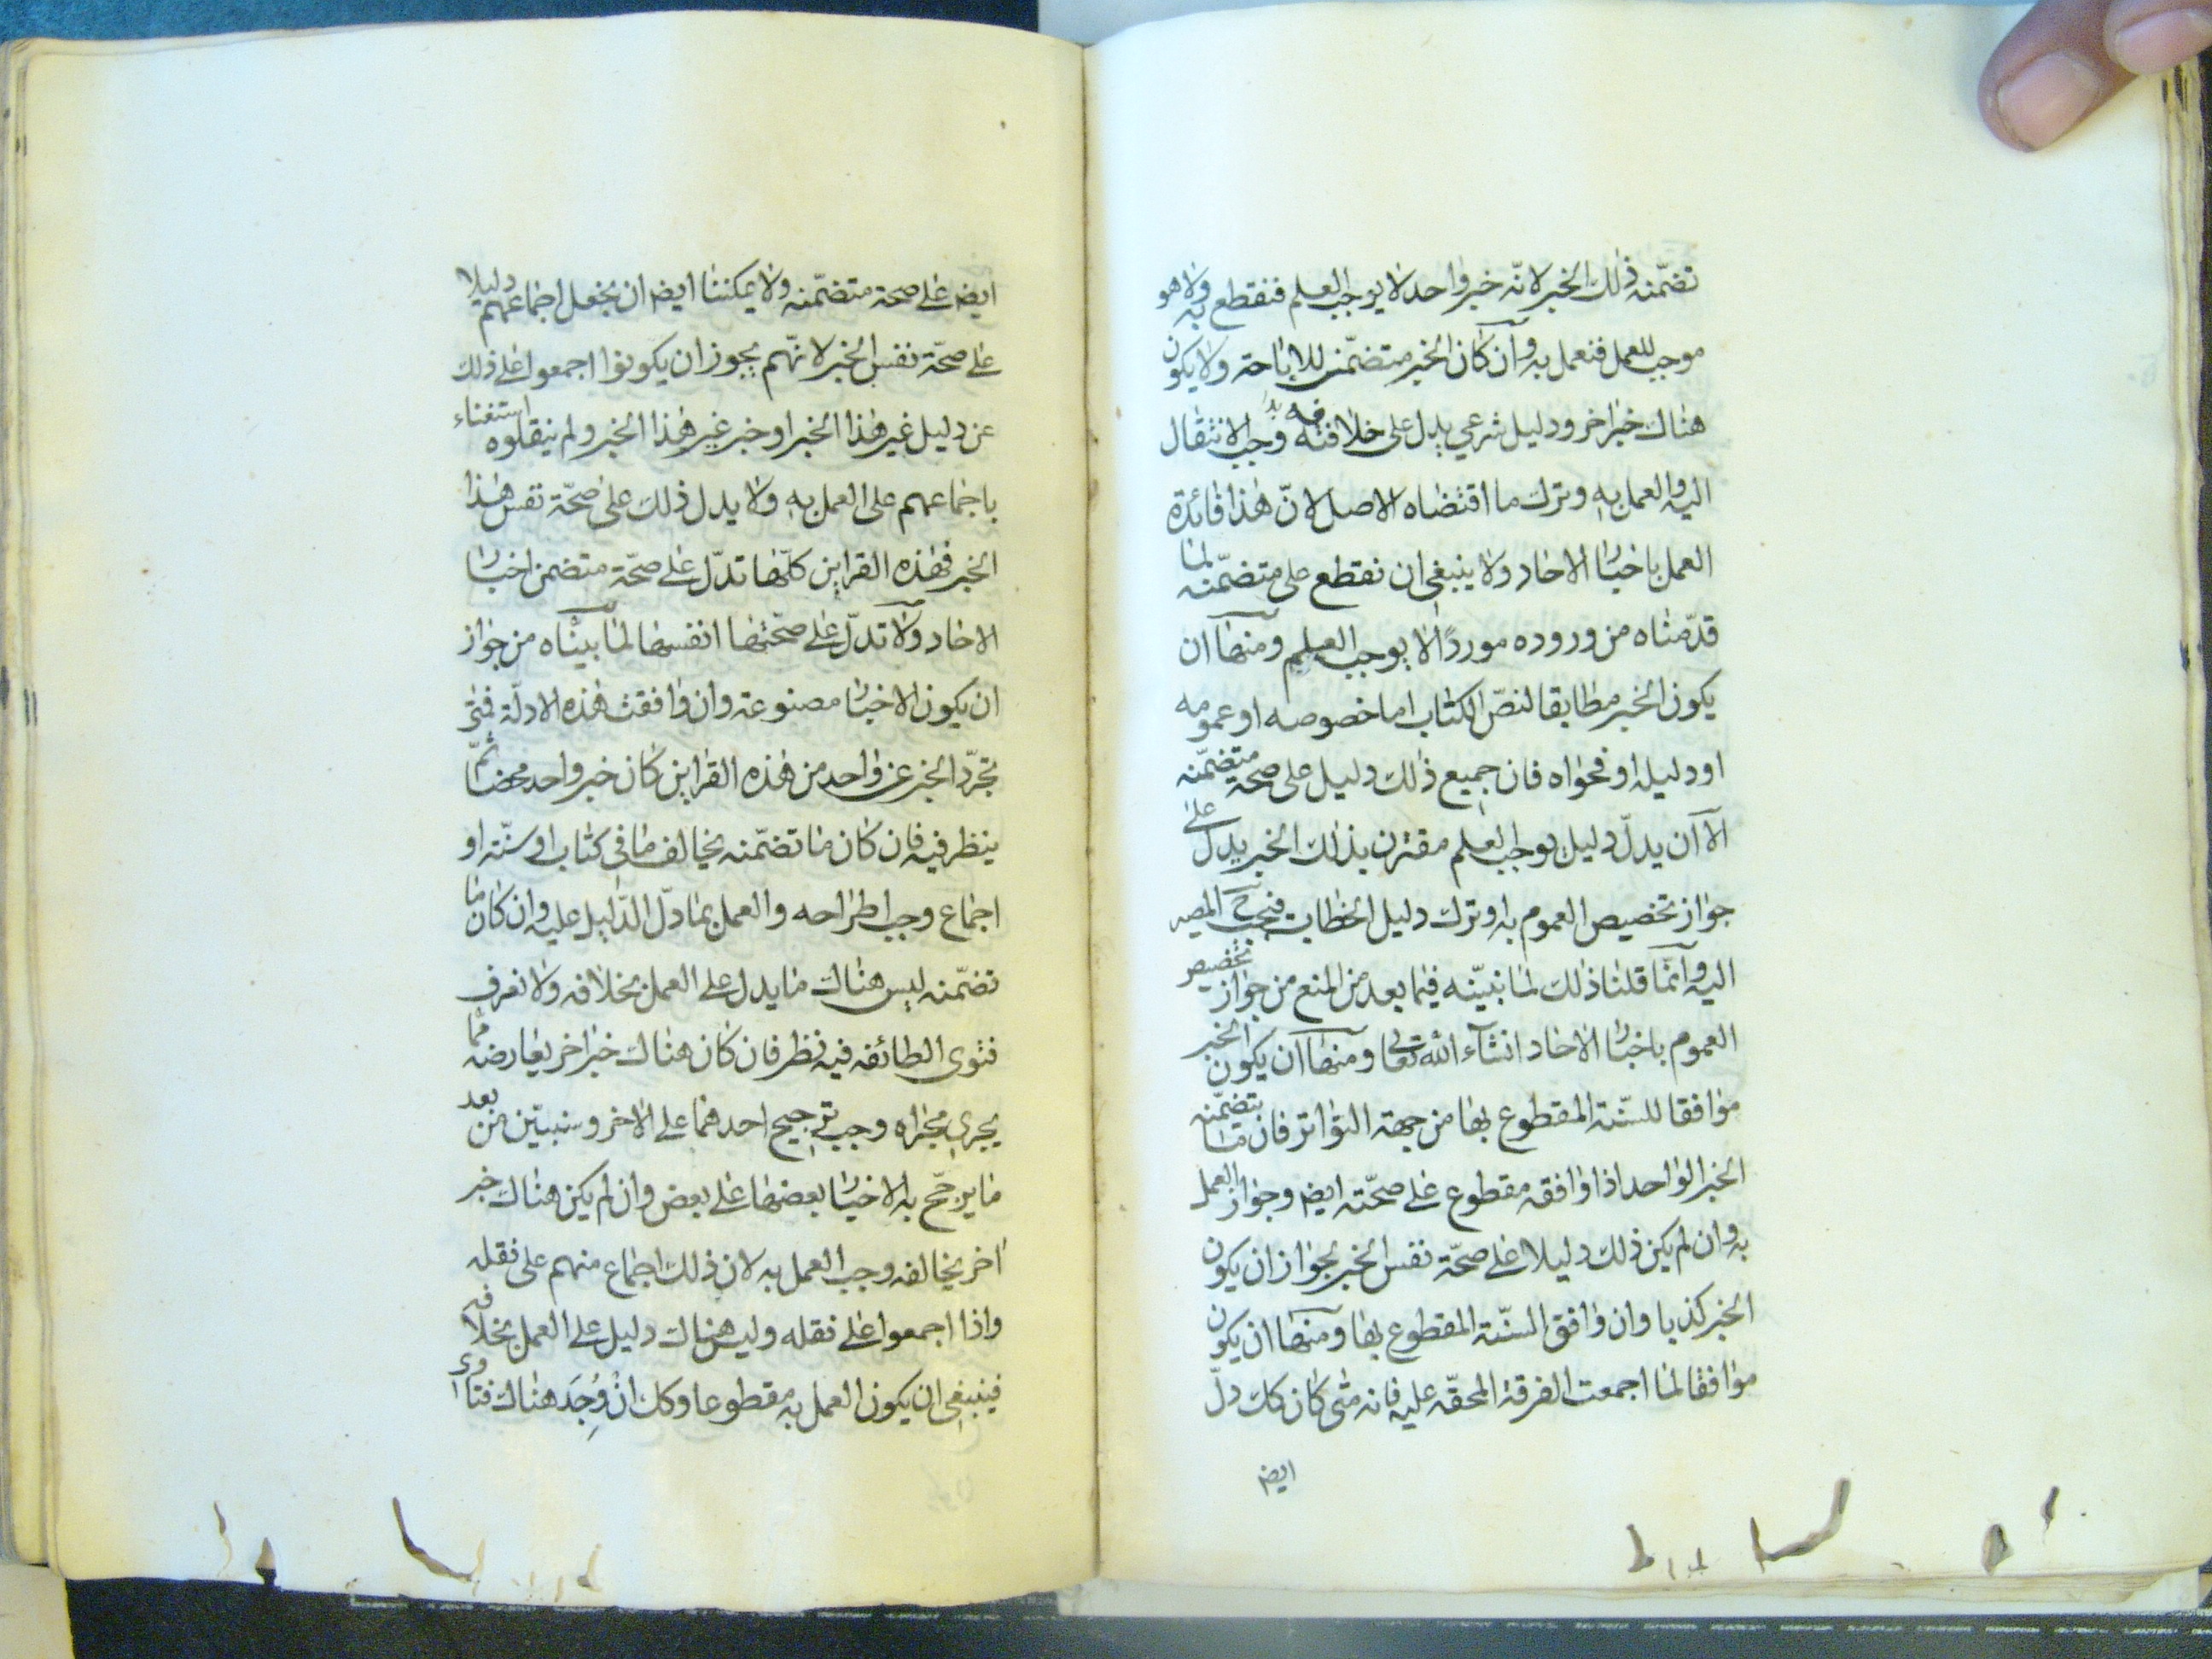 تضمّنه ذلك الخبر لانّه خبر واحد لا يوجب العلم فنقطع به ولا هو
موجب للعمل فنعمل به وان كان الخبر متضمّنا للاباحة ولا يكون
هناك خبر اخر ودليل شرعي يدل على خلافه وجب الانتقال
اليه والعمل به وترك ما اقتضاه الاصل لانّ هذا فائدة
العمل باخبار الاحاد ولا ينبغي ان نقطع على متضمّنه لما
قدّمناه من وروده موردًا لا يوجب العلم ومنها ان
يكون الخبر مطابقا لنصّ الكتاب اما خصوصه او عمومه
او دليله او فحواه فان جميع ذلك دليل على صحة متضمّنه
الا ان يدلّ دليل يوجب العلم مقترن بذلك الخبر يدل على
جواز تخصيص العموم به او ترك دليل الخطاب فيجب ح المصير
اليه وانّما قلنا ذلك لما نبيّنه فيما بعد من المنع من جواز تخصيص
العموم باخبار الاحاد انشآء الله تعالى ومنها ان يكون الخبر
موافقا للسّنة المقطوع بها من جهة التواتر فان ما يتضمّنه
الخبر الواحد اذا وافقه مقطوع على صحّته ايض وجواز العمل
به وان لم يكن ذلك دليلا على صحّة نفس الخبر لجواز ان يكون
الخبر كذبا وان وافق السنّة المقطوع بها ومنها ان يكون
موافقا لما اجمعت الفرقة المحقّه عليه فانه متى كان كك دلّ
ايض
ايض على صحة متضمّنه ولا يمكننا ايض ان نجعل اجماعهم دليلا
على صحّة نفس الخبر لانّهم يجوز ان يكونوا اجمعوا على ذلك
عن دليل غير هذا الخبر او خبر غير هذا الخبر ولم ينقلوه استغناء
باجماعهم على العمل به ولا يدل ذلك على صحّة نفس هذا
الخبر فهذه القراين كلّها تدلّ على صحّة متضمن اخبار
الاحاد ولا تدلّ على صحّتها انفسها لما بيّنّاه من جواز
ان يكون الاخبار مصنوعة وان وافقت هذه الادلّة فمتى
تجرّد الخبر عن واحد من هذه القراين كان خبر واحد محضا ثمّ
ينظر فيه فان كان ما تضمّنه يخالف ما في كتاب او سنّة او
اجماع وجب اطراحه والعمل بما دلّ الدّليل عليه وان كان ما
تضمّنه ليس هناك ما يدل على العمل بخلافه ولا نعرف
فتوى الطائفه فيه نظر فان كان هناك خبر اخر يعارضه ممّا
يجري مجراه وجب ترجيح احدهما على الاخر وسنبيّن من بعد
ما يرجّح به الاخبار بعضها على بعض وان لم يكن هناك خبر
اخر يخالفه وجب العمل به لان ذلك اجماع منهم على نقله
واذا اجمعوا على نقله وليس هناك دليل على العمل بخلافه
فينبغي ان يكون العمل به مقطوعا وكك ان وُجِدَ هناك فتاوى